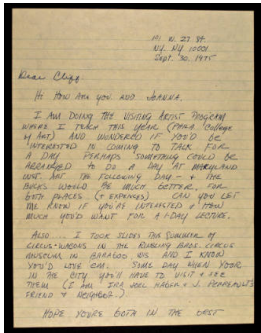 141 W. 27 St.
NY. NY 10001
Sept. 30, 1975
Dear Cliff
Hi How are you and Joanna.
I am doing the visiting artist program
where I teach this year (Phila. College
of Art) and wondered if you'd be
interested in coming to talk for
a day Perhaps something could be
arranged to do a day at Maryland
Inst. Art the following day – the
bucks would be much better, for
both places (+ expenses) Can you let
me know if you're interested + how
much you'd want for a 1-day lecture.
Also.... I took slides for summer of
circus-wagons in the Ringling Bros. Circus
Museum in Baraboo Wis and I know
you'd love em. Some day when your
in the city you'll have to visit + see
them (I am Ira Joel Haber + J.
friend + neighbor.)
Hope you're both in the best